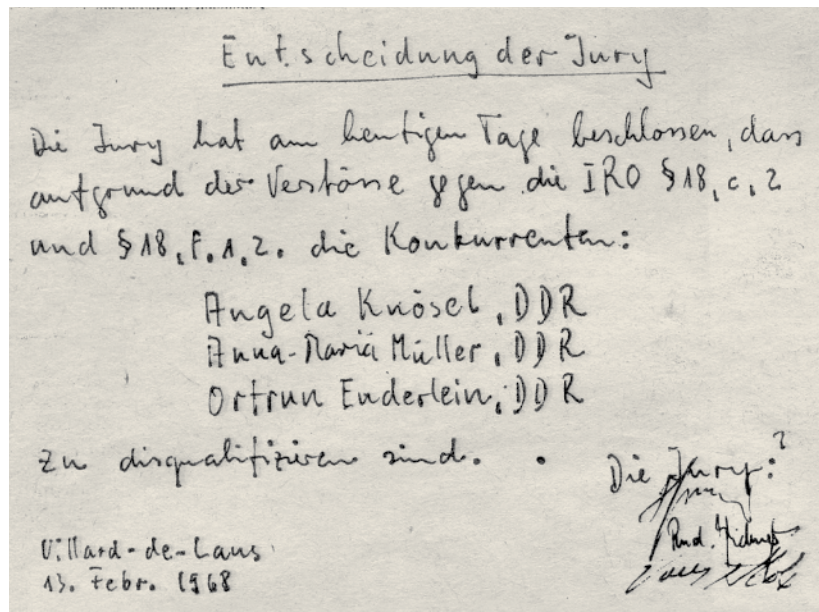 Entscheidung der Jury
Die Jury hat am heutigen Tage beschlossen, dass
aufgrund der Verstösse gegen die IRO §18, c, 2
und §18, f. 1, 2. die Konkurrenten:
Angela Knösel, DDR
Anna-Maria Müller, DDR
Ortrun Enderlein, DDR
zu disqualifizieren sind.
Die Jury:
Villard-de-Lans
13. Febr. 1968